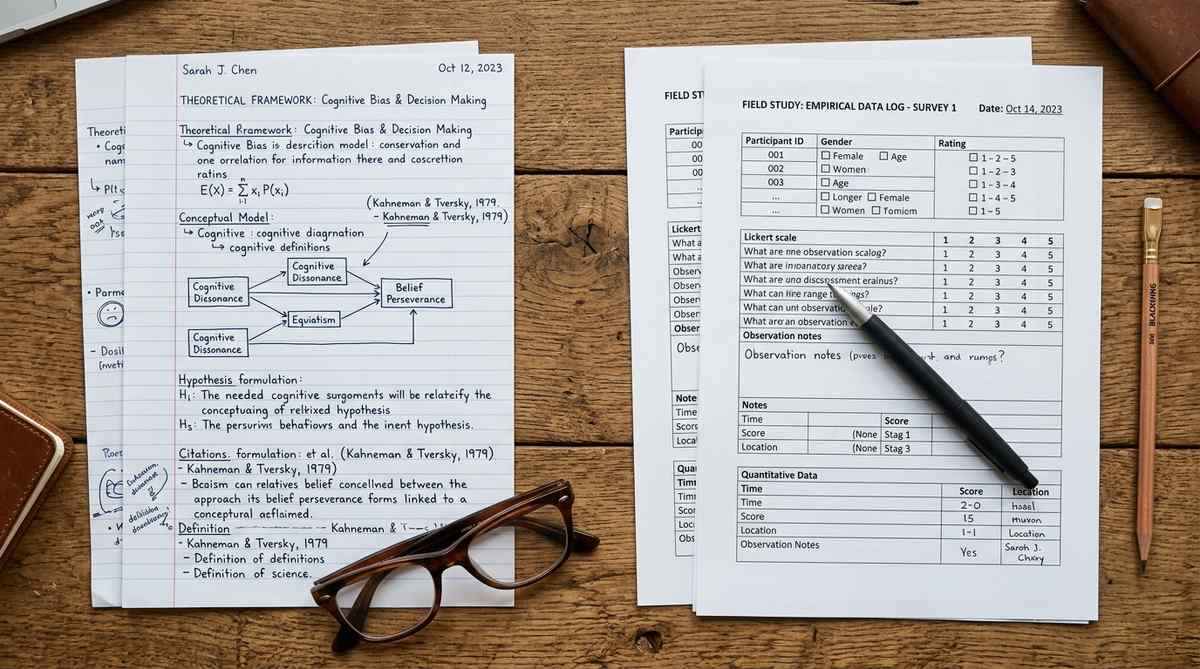 Sarah J. Chen
Oct 12, 2023
THEORETICAL FRAMEWORK: Cognitive Bias & Decision Making
Theoretical Rramework: Cognitive Bias & Decision Making
↳ Cognitive Bias is descrition model: conservation and
one orrelation for information there and coscrettion
ratins
E(X) = Σ xᵢ P(xᵢ)
(Kahneman & Tversky, 1979.
Conceptual Model:
- Kahneman & Tversky, 1979)
↳ Cognitive: cognitive diagrnation
↳ cognitive definitions
Cognitive
Dissonance
Cognitive
Dicsonance
Belief
Perseverance
Equiatism
Cognitive
Dissonance
Hypothesis formulation:
H₁: The needed cognitive surgoments will be relateify the
conceptuaing of reltrixed hypothesis
H₅: The persurins behafivurs and the inent hypothesis.
Citations. formulation: et al. (Kahneman & Tversky, 1979)
- Kahneman & Tversky, 1979)
- Bcaism can relatives belief concellned between the
approach its belief perseverance forms linked to a
conceptural aeflaimed.
Definition Kahneman &
- Kahneman & Tversky, 1979
- Definition of definitions
- Definition of science.
Theoreti
• Cog
nam
• Parme
- Dosil
FIELD ST
Particip
00
00
00
...
Lickert
What a
What a
Observ
Observ
Observ
Obser
Obse
Note
Time
Score
Locat
Qua
Tim
Time
Scor
Loc
Obs
FIELD STUDY: EMPIRICAL DATA LOG - SURVEY 1
Date: Oct 14, 2023
Participant ID Gender Rating
001 ☐ Female ☐ Age ☐ 1-2-5
002 ☐ Women ☐ 1-2-3
003 ☐ Age ☐ 1-3-4
... ☐ Longer ☐ Female ☐ 1-4-5
... ☐ Women ☐ Tomiom ☐ 1-5
Lickert scale 1 2 3 4 5
What are observation scalog? 1 2 3 4 5
What are 1 2 3 4 5
What are erainus? 1 2 3 4 5
What can range 1 2 3 4 5
What can observation 1 2 3 4 5
What an observation 1 2 3 4 5
Observation notes
Observation notes and rumps?
Notes
Time Score
Score (None Stag 1
Location (None Stag 3
Quantitative Data
Time Score Location
Time 2-0
Score 15
Location 1-1 Location
Observation Notes Yes Sarah J.
BLACKWING